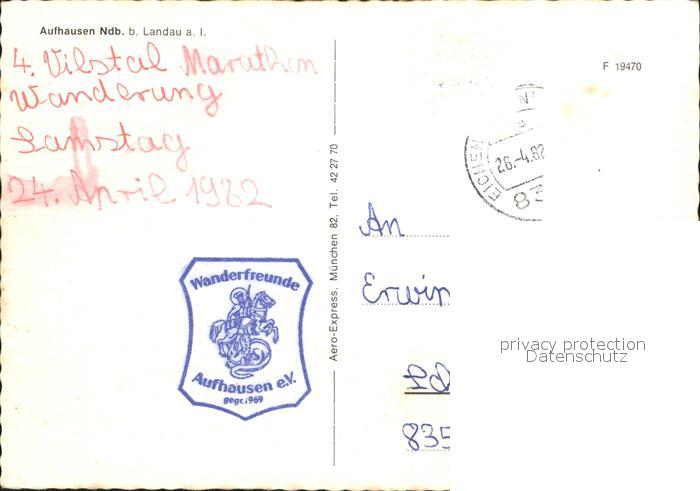 Aufhausen Ndb. b. Landau a. I.
4. Vilstal Marathon
Wanderung
Samstag
24. April 1982
F 19470
EICHEN
26.-4.82
83
Aero-Express, München 82, Tel. 42 27 70
An
Erwin
835
Wanderfreunde
Aufhausen e.V.
gegr. 1969
privacy protection
Datenschutz